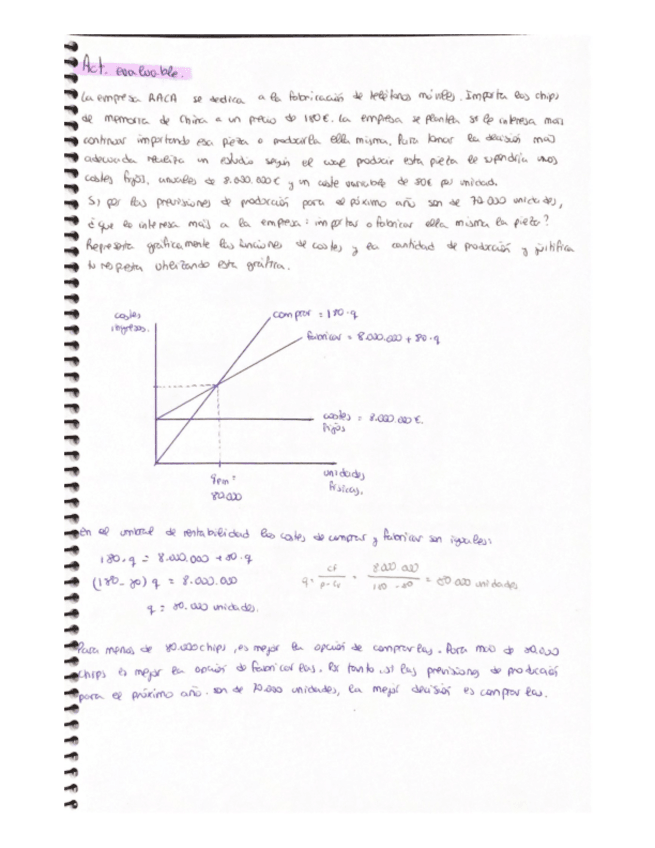 Act. evaluable.
La empresa RACA se dedica a la fabricación de teléfonos móviles. Importa los chips
de memoria de China a un precio de 180€. La empresa se plantea si le interesa más
continuar importando esa pieza o producirla ella misma. Para tomar la decisión más
adecuada realiza un estudio según el cual producir esta pieza le supondría unos
costes fijos, anuales de 8.000.000€ y un coste variable de 80€ por unidad.
Si por las previsiones de producción para el próximo año son de 70.000 unidades,
¿que le interesa más a la empresa: importar o fabricar ella misma la pieza?
Representa gráficamente las funciones de costes y la cantidad de producción y justifica
tu respuesta utilizando esta gráfica.
costes
ingresos.
comprar = 180·q
fabricar = 8.000.000 + 80·q
costes = 8.000.000€.
fijos
unidades
físicas.
80.000
En el umbral de rentabilidad los costes de comprar y fabricar son iguales:
180·q = 8.000.000 + 80·q
(180-80) q = 8.000.000
q = CF / P-Cv = 8.000.000 / 180-80 = 80.000 unidades
q = 80.000 unidades.
Para menos de 80.000 chips, es mejor la opción de comprarlas. Para más de 80.000
chips es mejor la opción de fabricarlas. Por tanto, si las previsiones de producción
para el próximo año son de 70.000 unidades, la mejor decisión es comprarlas.